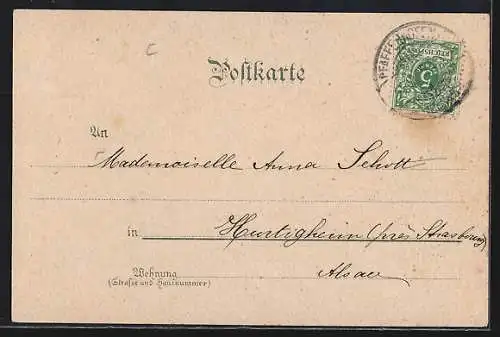 C
PFAFFENHOFEN
REICHSPOST
5
Postkarte
An
Mademoiselle Anna Schott
in Hurtigheim (près Strasbourg)
Alsace
Wohnung
(Straße und Hausnummer)